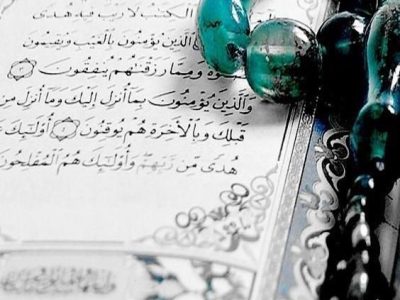 الكتب لا ريب فيه هدى
الذين يؤمنون بالغيب ويقيمون
وَمِمَّا رَزَقْنَٰهُمْ يُنفِقُونَ ٣
وَالَّذِينَ يُؤْمِنُونَ بِمَا أُنزِلَ إِلَيْكَ وَمَا أُنزِلَ مِن
قَبْلِكَ وَبِالْآخِرَةِ هُمْ يُوقِنُونَ ٤ أُوْلَٰئِكَ
هُدًى مِّن رَّبِّهِمْ وَأُوْلَٰئِكَ هُمُ الْمُفْلِحُونَ